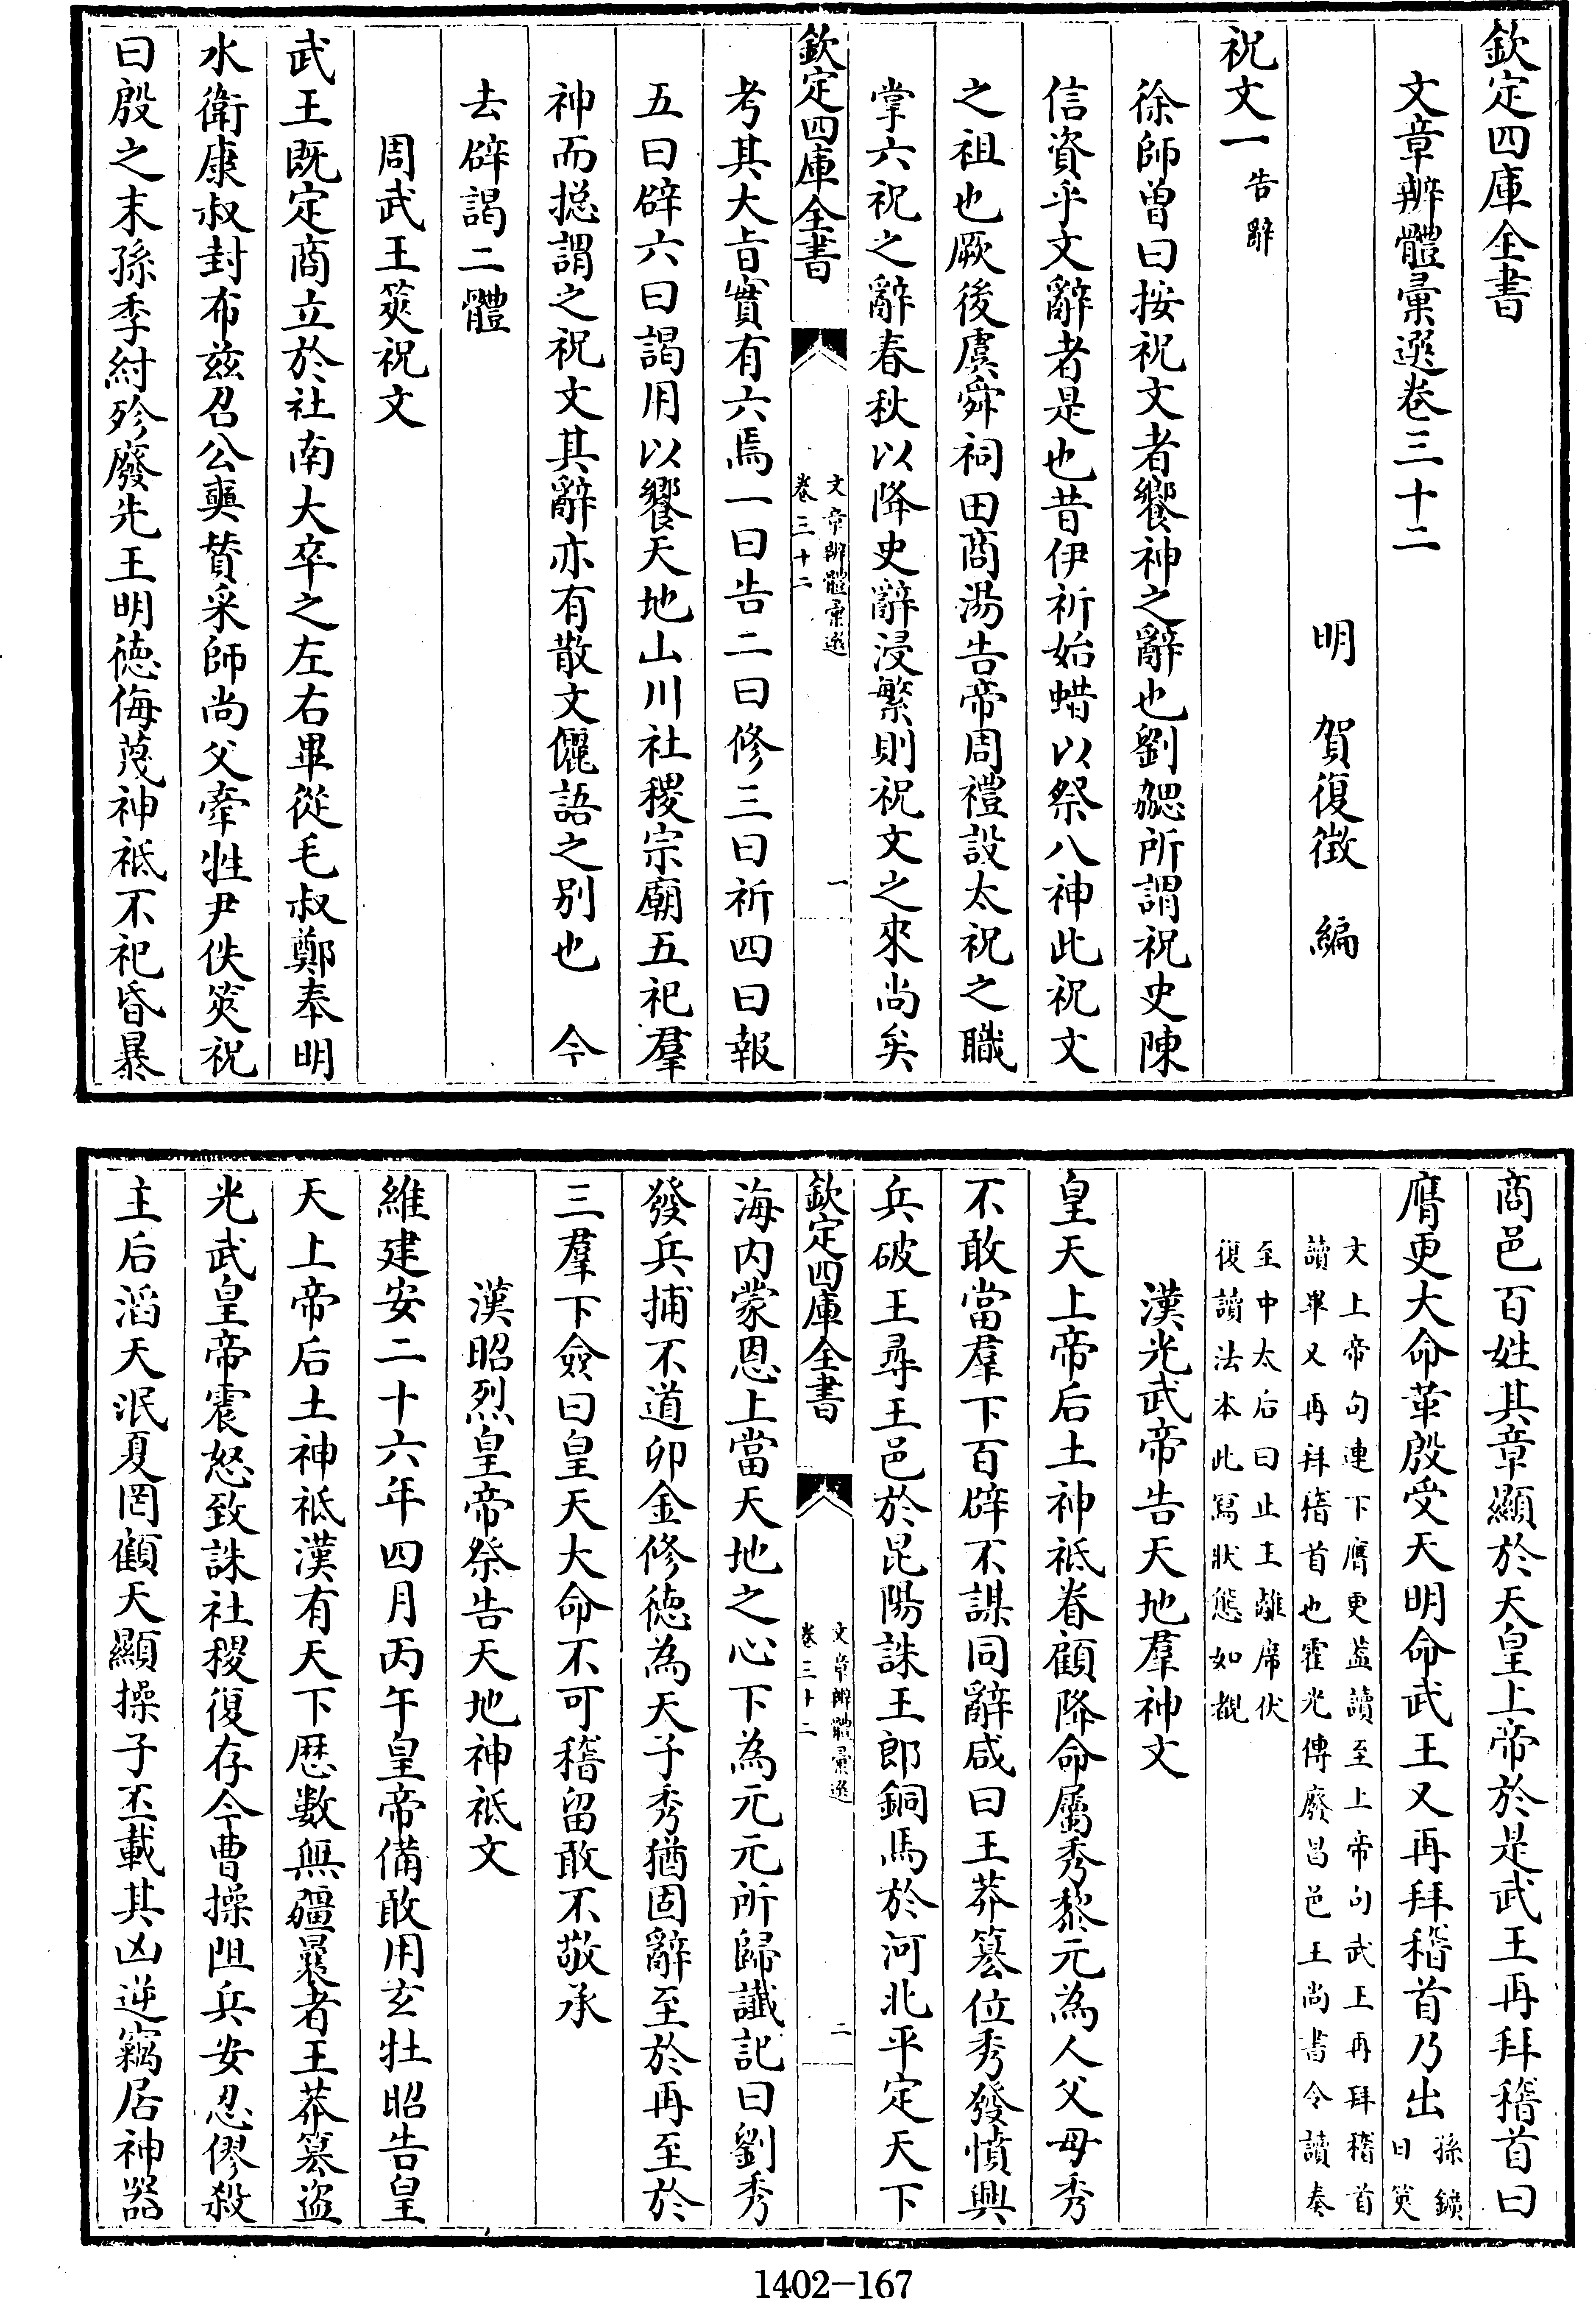 欽定四庫全書
文章辨體彙選卷三十二
明　賀復徵　編
祝文一告辭
徐師曾曰按祝文者饗神之辭也劉勰所謂祝史陳
信資乎文辭者是也昔伊祈始蜡以祭八神此祝文
之祖也厥後虞舜祠田商湯告帝周禮設太祝之職
掌六祝之辭春秋以降史辭浸繁則祝文之來尚矣
欽定四庫全書
文章辨體彙選
卷三十二
一
考其大旨實有六焉一曰告二曰修三曰祈四曰報
五曰辟六曰謁用以饗天地山川社稷宗廟五祀羣
神而捴謂之祝文其辭亦有散文儷語之別也　今
去辟謁二體
周武王筴祝文
武王既定商立於社南大卒之左右畢從毛叔鄭奉明
水衛康叔封布兹召公奭賛采師尚父牽牲尹佚筴祝
曰殷之末孫季紂殄廢先王明德侮蔑神祇不祀昏暴
商邑百姓其章顯於天皇上帝於是武王再拜稽首曰
膺更大命革殷受天明命武王又再拜稽首乃出
孫鑛
曰筴
文上帝句連下膺更葢讀至上帝句武王再拜稽首
讀畢又再拜稽首也霍光傳廢昌邑王尚書令讀奏
至中太后曰止王離席伏
復讀法本此寫狀態如覩
漢光武帝告天地羣神文
皇天上帝后土神祇眷顧降命屬秀黎元為人父母秀
不敢當羣下百辟不謀同辭咸曰王莽簒位秀發憤興
兵破王尋王邑於昆陽誅王郎銅馬於河北平定天下
欽定四庫全書
文章辨體彙選
卷三十二
二
海内蒙恩上當天地之心下為元元所歸讖記曰劉秀
發兵捕不道卯金修德為天子秀猶固辭至於再至於
三羣下僉曰皇天大命不可稽留敢不敬承
漢昭烈皇帝祭告天地神祇文
維建安二十六年四月丙午皇帝備敢用玄牡昭告皇
天上帝后土神祇漢有天下歴數無疆曩者王莽簒盗
光武皇帝震怒致誅社稷復存今曹操阻兵安忍僇殺
主后滔天泯夏罔顧天顯操子丕載其凶逆竊居神器
1402-167